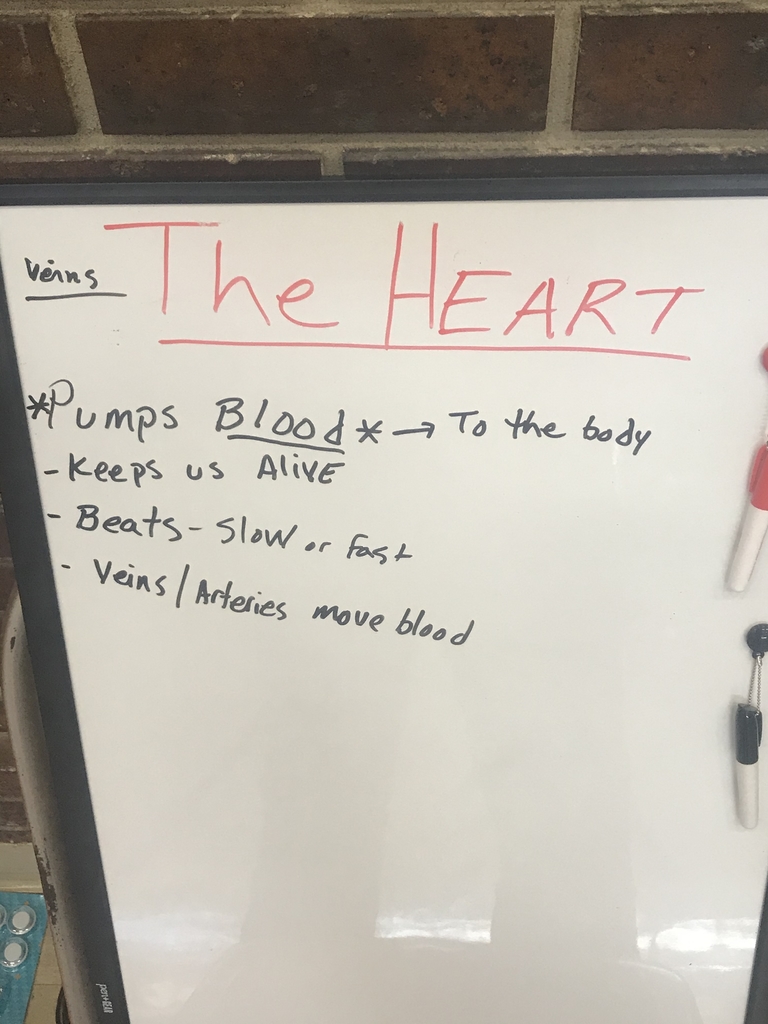 Veins
The HEART
*Pumps Blood* → To the body
- Keeps us AliVE
- Beats - Slow or Fast
- Veins / Arteries move blood